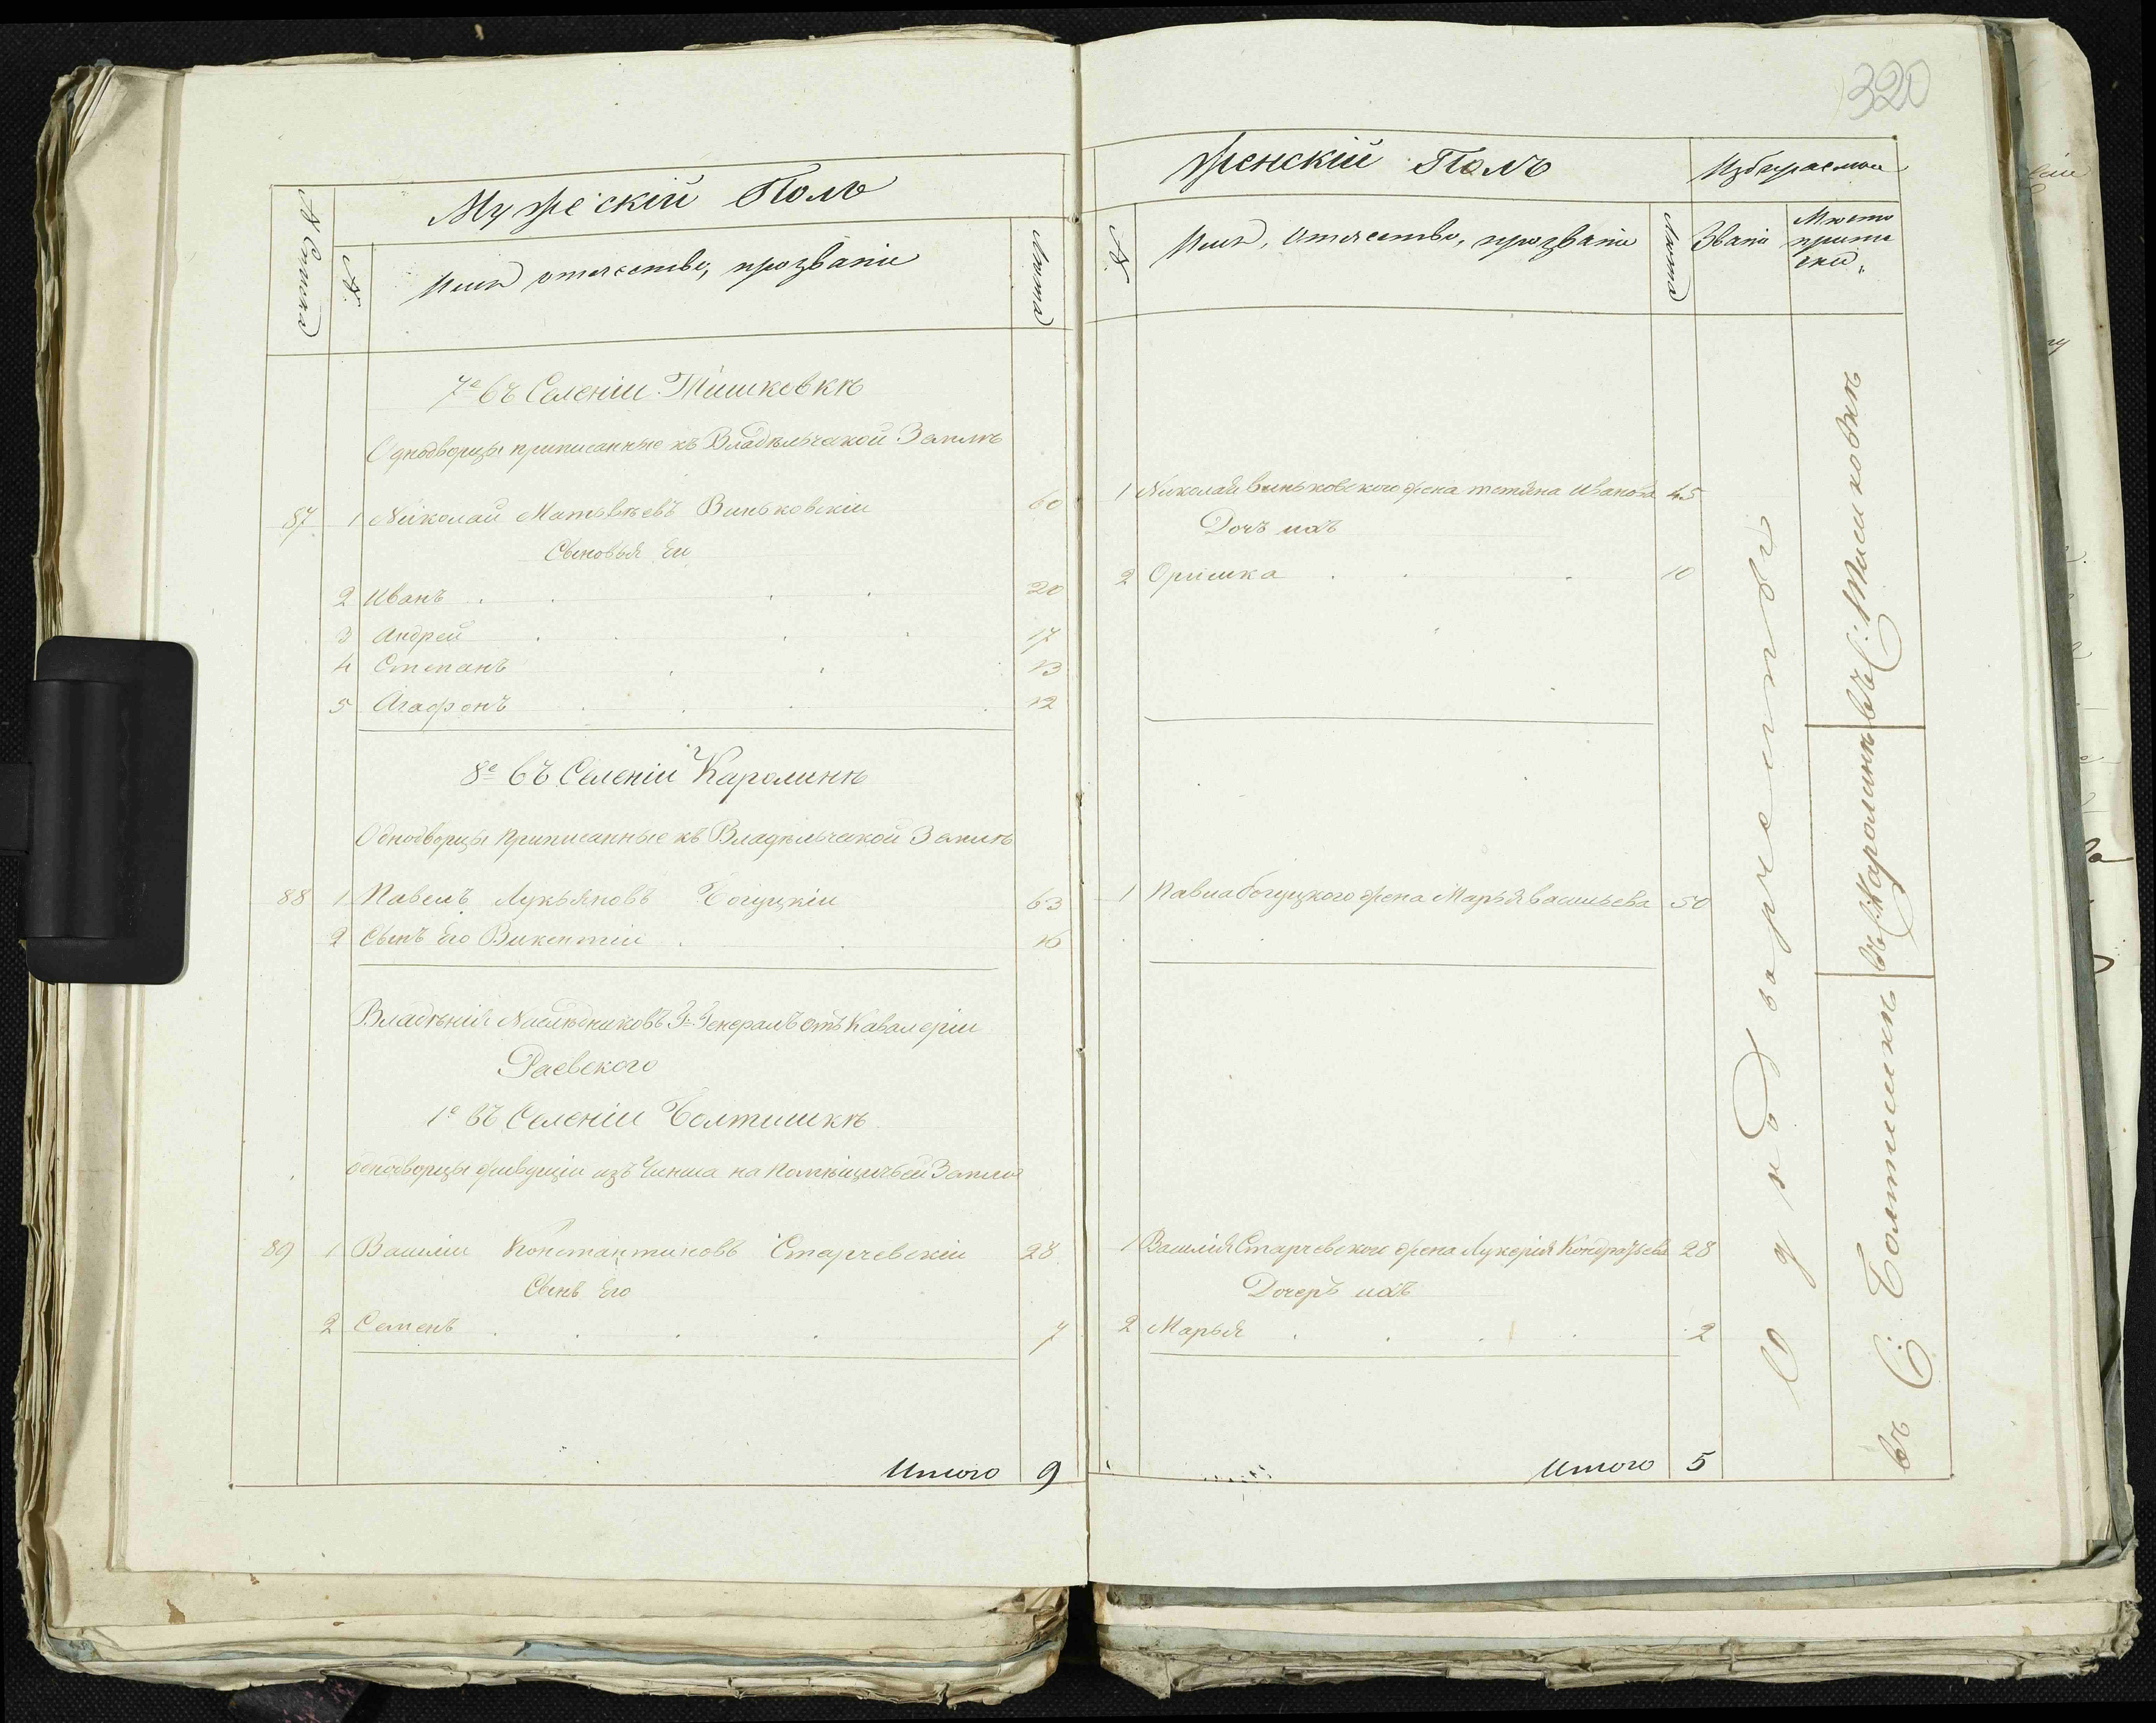 320
Мужескій Полъ
№ Семей
№
Имя отечество, прозваніе
Лѣта
7е въ Селеніи Тишковкѣ
Однодворцы приписанные къ Владѣльческой Землѣ
87 1 Николай Матвѣевъ Виньковскій 60
Сыновья Ег
2 Иванъ 20
3 Андрей 17
4 Степанъ 13
5 Агафонъ 12
8е въ Селеніи Каролинѣ
Однодворцы приписанные къ Владѣльческой Землѣ
88 1 Павелъ Лукьяновъ Богуцкій 63
2 Сынъ Его Викентій 16
Владѣнія Наслѣдниковъ Г. Генералъ отъ Кавалеріи
Раевского
1е въ Селеніи Болтишкѣ
Однодворцы живущіи изъ Чинша на Помѣщичьей Землѣ
89 1 Василій Константиновъ Старчевскій 28
Сынъ Его
2 Семенъ 7
Итого 9
Женскій Полъ
№
Имя, Отчество, прозваніе
Лѣта
Избираемои
Званіе
Мѣсто приписки
1 Николая Виньковского жена Тетяна Иванова 45
Дочъ ихъ
2 Оришка 10
1 Павла Богуцкого жена Марья Васильева 50
1 Василія Старчевского жена Лукерія Кондратьева 28
Дочеръ ихъ
2 Марья 2
Итого 5
Однодворчество
въ С: Тишковкѣ
въ С: Каролинѣ
въ С: Болтишкѣ